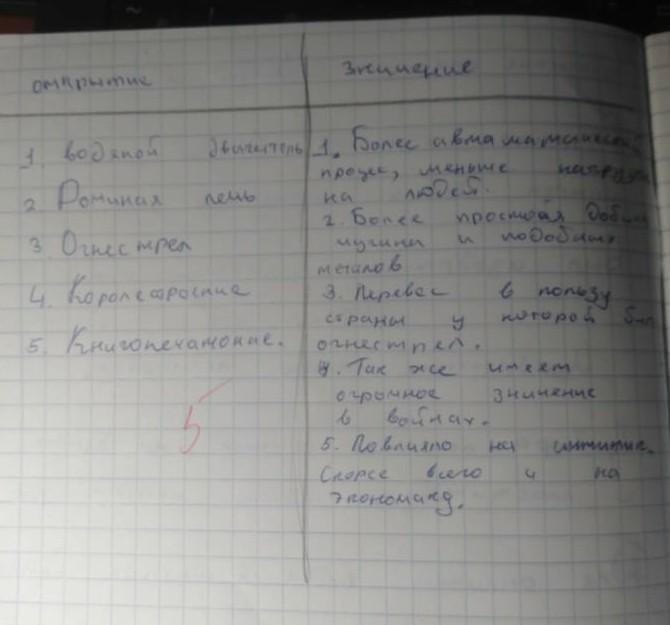 открытие
значение
1. водяной двигатель
2 Доминая печь
3 Огнестрел
4. Кораблестроение
5. Книгопечатание.
5
1. Более автоматический
процес, меньше нагрузки
на людей.
2. Более простая добыча
чугина и подобных
металов
3. Перевес в пользу
страны у которой был
огнестрел.
4. Так же имеет
огромное значение
в войнах.
5. Повлияло на
Скорее всего и на
экономику.